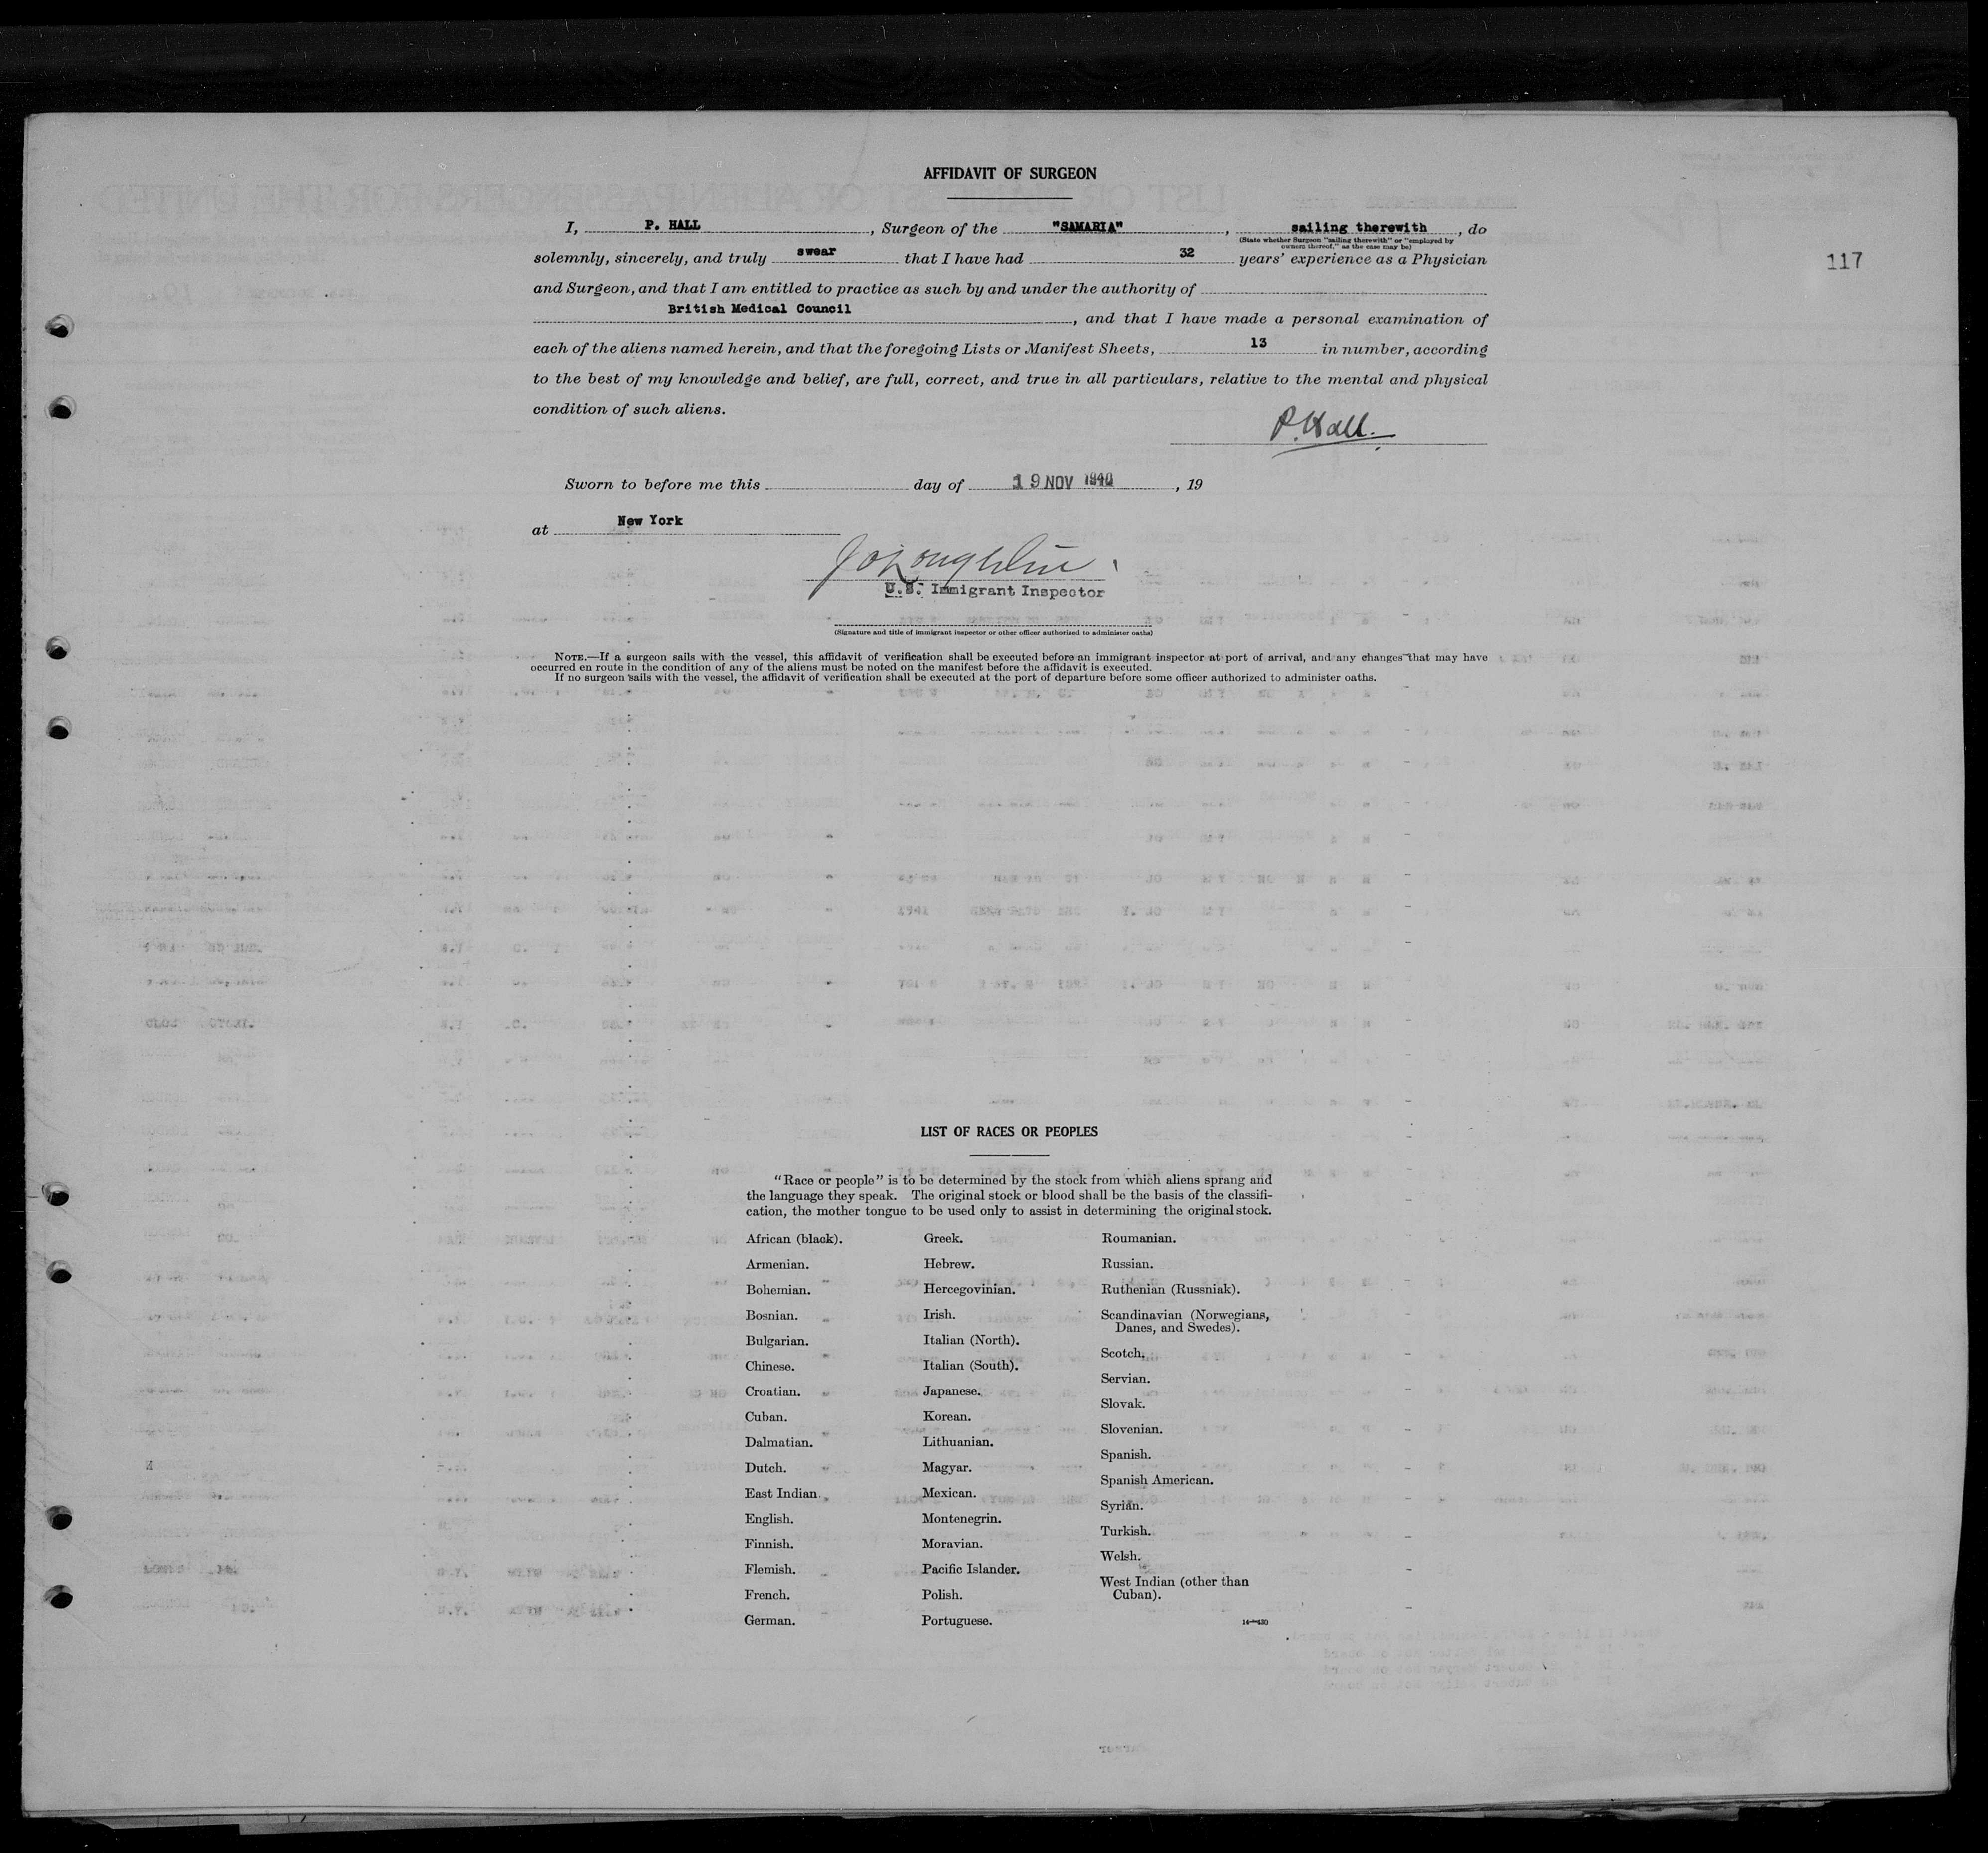 AFFIDAVIT OF SURGEON
I, P. HALL, Surgeon of the "SAMARIA", sailing therewith, do
(State whether Surgeon "sailing therewith" or "employed by
owners thereof," as the case may be)
solemnly, sincerely, and truly swear that I have had 32 years' experience as a Physician
117
and Surgeon, and that I am entitled to practice as such by and under the authority of
British Medical Council, and that I have made a personal examination of
each of the aliens named herein, and that the foregoing Lists or Manifest Sheets, 13 in number, according
to the best of my knowledge and belief, are full, correct, and true in all particulars, relative to the mental and physical
condition of such aliens.
P. Hall.
Sworn to before me this day of 19 NOV 1940, 19
at New York
U.S. Immigrant Inspector
(Signature and title of immigrant inspector or other officer authorized to administer oaths)
NOTE.—If a surgeon sails with the vessel, this affidavit of verification shall be executed before an immigrant inspector at port of arrival, and any changes that may have
occurred en route in the condition of any of the aliens must be noted on the manifest before the affidavit is executed.
If no surgeon sails with the vessel, the affidavit of verification shall be executed at the port of departure before some officer authorized to administer oaths.
LIST OF RACES OR PEOPLES
"Race or people" is to be determined by the stock from which aliens sprang and
the language they speak. The original stock or blood shall be the basis of the classifi-
cation, the mother tongue to be used only to assist in determining the original stock.
African (black).
Armenian.
Bohemian.
Bosnian.
Bulgarian.
Chinese.
Croatian.
Cuban.
Dalmatian.
Dutch.
East Indian.
English.
Finnish.
Flemish.
French.
German.
Greek.
Hebrew.
Hercegovinian.
Irish.
Italian (North).
Italian (South).
Japanese.
Korean.
Lithuanian.
Magyar.
Mexican.
Montenegrin.
Moravian.
Pacific Islander.
Polish.
Portuguese.
Roumanian.
Russian.
Ruthenian (Russniak).
Scandinavian (Norwegians,
Danes, and Swedes).
Scotch.
Servian.
Slovak.
Slovenian.
Spanish.
Spanish American.
Syrian.
Turkish.
Welsh.
West Indian (other than
Cuban).